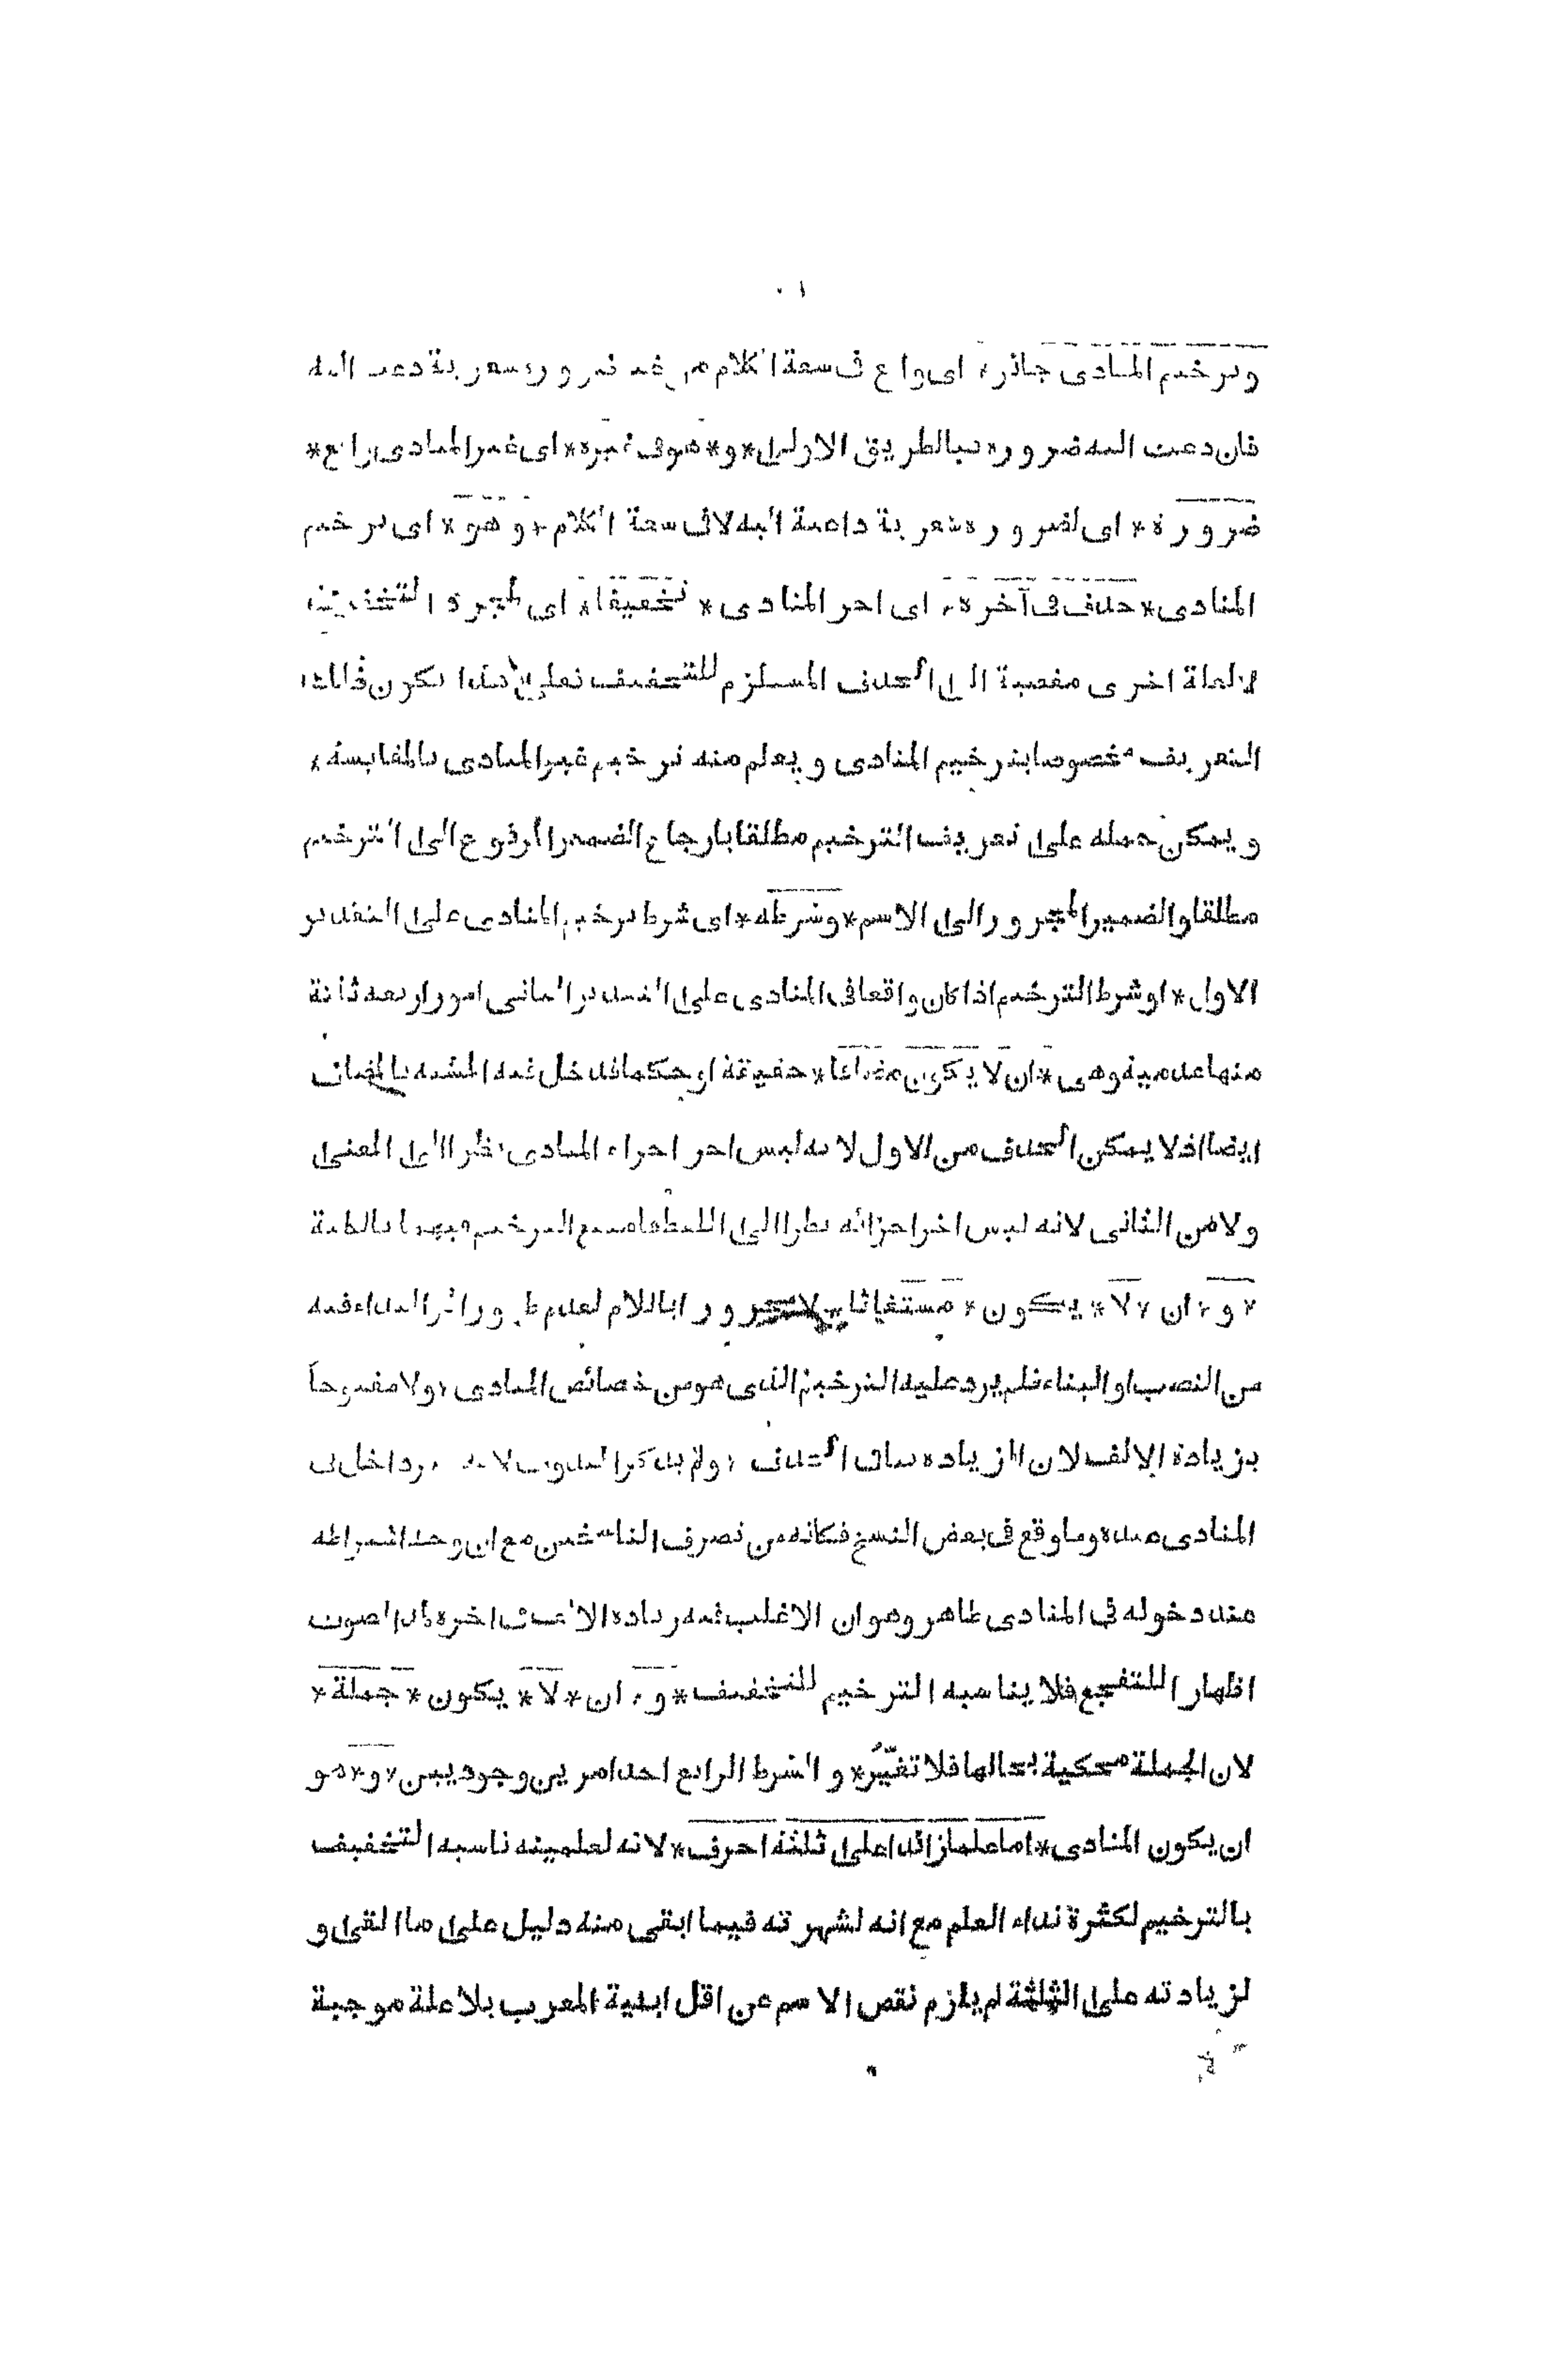 وترخيم المنادى جائز * اى واقع فى سعة الكلام من غير ضرورة شعرية دعت اليه
فان دعت اليه ضرورة فبالطريق الاولى * و * هو فى غيره * اى غير المنادى واقع *
ضرورة * اى لضرورة شعرية داعية اليه لا فى سعة الكلام * وهو * اى ترخيم
المنادى * حذف فى آخره * اى اخر المنادى * تخفيفا * اى لمجرد التخفيف
لا لعلة اخرى مفضية الى الحذف المستلزم للتخفيف فعلى هذا يكون ذلك
التعريف مخصوصا بترخيم المنادى ويعلم منه ترخيم غير المنادى بالمقايسة *
ويمكن حمله على تعريف الترخيم مطلقا بارجاع الضمير المرفوع الى الترخيم
مطلقا والضمير المجرور الى الاسم * وشرطه * اى شرط ترخيم المنادى على التقدير
الاول * او شرط الترخيم اذا كان واقعا فى المنادى على التقدير الثانى امور اربعة ثلثة
منها عدمية وهى * ان لا يكون مضافا * حقيقة او حكما فدخل فيه المشبه بالمضاف
ايضا اذ لا يمكن الحذف من الاول لانه ليس اخر اجزاء المنادى نظرا الى المعنى
ولا من الثانى لانه ليس اخر اجزائه نظرا الى اللفظ فامتنع الترخيم فيهما بالكلية
* و * ان * لا * يكون * مستغاثا * لا مجرورا باللام لعدم ظهور اثر النداء فيه
من النصب او البناء فلم يرد عليه الترخيم الذى هو من خصائص المنادى * ولا مفتوحا
بزيادة الالف لان الزيادة تنافى الحذف * ولم يذكر المندوب لانه غير داخل فى
المنادى عنده وما وقع فى بعض النسخ فكانه من تصرف الناسخين مع ان وجه اشتراطه
عند دخوله فى المنادى ظاهر وهو ان الاغلب فيه زيادة الالف فى اخره لمد الصوت
اظهارا للتفجع فلا يناسبه الترخيم للتخفيف * و * ان * لا * يكون * جملة *
لان الجملة محكية بحالها فلا تغيّر * والشرط الرابع احد امرين وجوديين * و * هو
ان يكون المنادى * اما علما زائدا على ثلثة احرف * لانه لعلميته ناسبه التخفيف
بالترخيم لكثرة نداء العلم مع انه لشهرته فيما ابقى منه دليل على ما القى و
لزيادته على الثلثة لم يلزم نقص الاسم عن اقل ابنية المعرب بلا علة موجبة